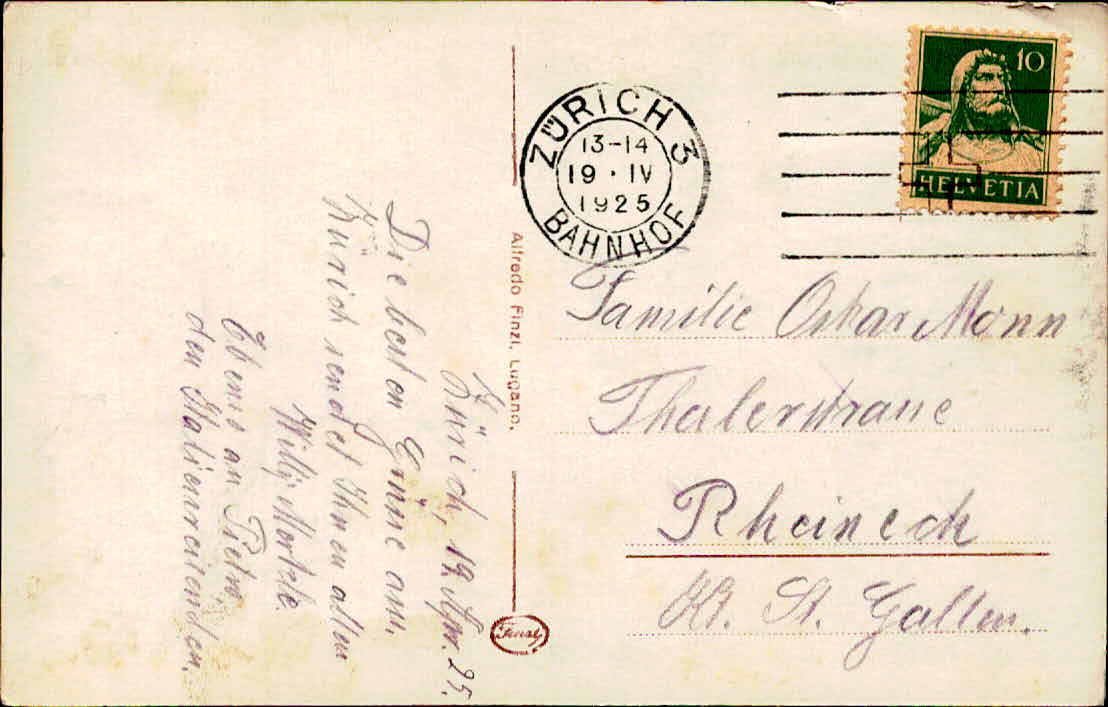 Zürich, 19. Apr. 25.
Die besten Grüsse aus
Zürich sendet Ihnen allen
Willy
Ebenso an Pietro,
den Italienreisenden.
Alfredo Finzi, Lugano.
Finzi
ZÜRICH 3
13-14
19 · IV
1925
BAHNHOF
10
HELVETIA
Familie Oskar Mann
Thalerstrasse
Rheineck
Kt. St. Gallen.